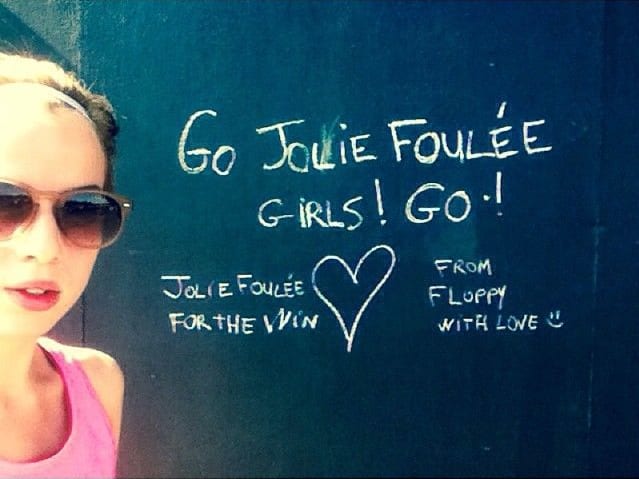 GO JOLIE FOULÉE
GIRLS! GO!
JOLIE FOULÉE
FOR THE WIN
FROM
FLOPPY
WITH LOVE